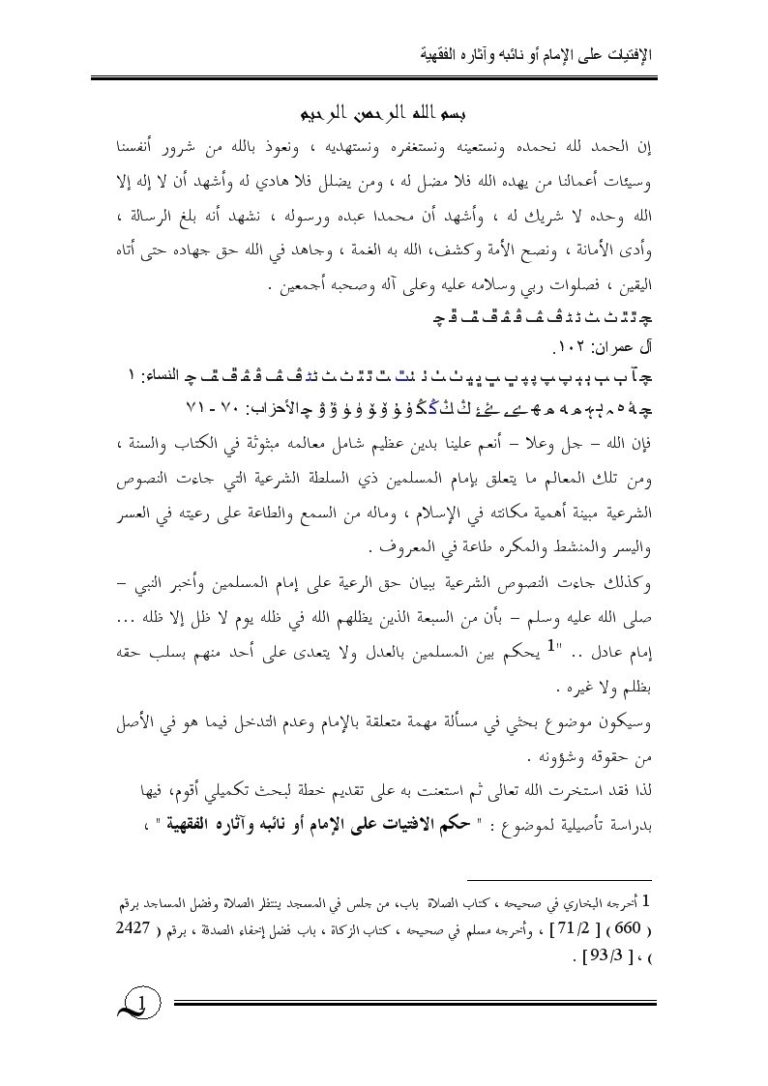 الإفتيات على الإمام أو نائبه وآثاره الفقهية
بسم الله الرحمن الرحيم
إن الحمد لله نحمده ونستعينه ونستغفره ونستهديه ، ونعوذ بالله من شرور أنفسنا
وسيئات أعمالنا من يهده الله فلا مضل له ، ومن يضلل فلا هادي له وأشهد أن لا إله إلا
الله وحده لا شريك له ، وأشهد أن محمدا عبده ورسوله ، نشهد أنه بلغ الرسالة ،
وأدى الأمانة ، ونصح الأمة وكشف، الله به الغمة ، وجاهد في الله حق جهاده حتى أتاه
اليقين ، فصلوات ربي وسلامه عليه وعلى آله وصحبه أجمعين .
آل عمران: ١٠٢.
النساء: ١
الأحزاب: ٧٠ - ٧١
فإن الله – جل وعلا – أنعم علينا بدين عظيم شامل معالمه مبثوثة في الكتاب والسنة ،
ومن تلك المعالم ما يتعلق بإمام المسلمين ذي السلطة الشرعية التي جاءت النصوص
الشرعية مبينة أهمية مكانته في الإسلام ، وماله من السمع والطاعة على رعيته في العسر
واليسر والمنشط والمكره طاعة في المعروف .
وكذلك جاءت النصوص الشرعية ببيان حق الرعية على إمام المسلمين وأخبر النبي –
صلى الله عليه وسلم – بأن من السبعة الذين يظلهم الله في ظله يوم لا ظل إلا ظله ...
إمام عادل .. "1 يحكم بين المسلمين بالعدل ولا يتعدى على أحد منهم بسلب حقه
بظلم ولا غيره .
وسيكون موضوع بحثي في مسألة مهمة متعلقة بالإمام وعدم التدخل فيما هو في الأصل
من حقوقه وشؤونه .
لذا فقد استخرت الله تعالى ثم استعنت به على تقديم خطة لبحث تكميلي أقوم، فيها
بدراسة تأصيلية لموضوع : " حكم الافتيات على الإمام أو نائبه وآثاره الفقهية " ،
1 أخرجه البخاري في صحيحه ، كتاب الصلاة باب، من جلس في المسجد ينتظر الصلاة وفضل المساجد برقم
( 660 ) [ 71/2 ] ، وأخرجه مسلم في صحيحه ، كتاب الزكاة ، باب فضل إخفاء الصدقة ، برقم ( 2427
) ، [ 93/3 ] .
1